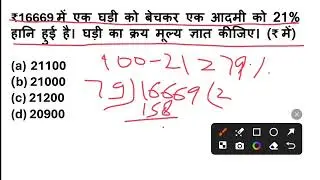 ₹16669 में एक घड़ी को बेचकर एक आदमी को 21%
हानि हुई है। घड़ी का क्रय मूल्य ज्ञात कीजिए। (₹ में)
100-21=79%
(a) 21100
(b) 21000
79)16669(2
158
(c) 21200
(d) 20900